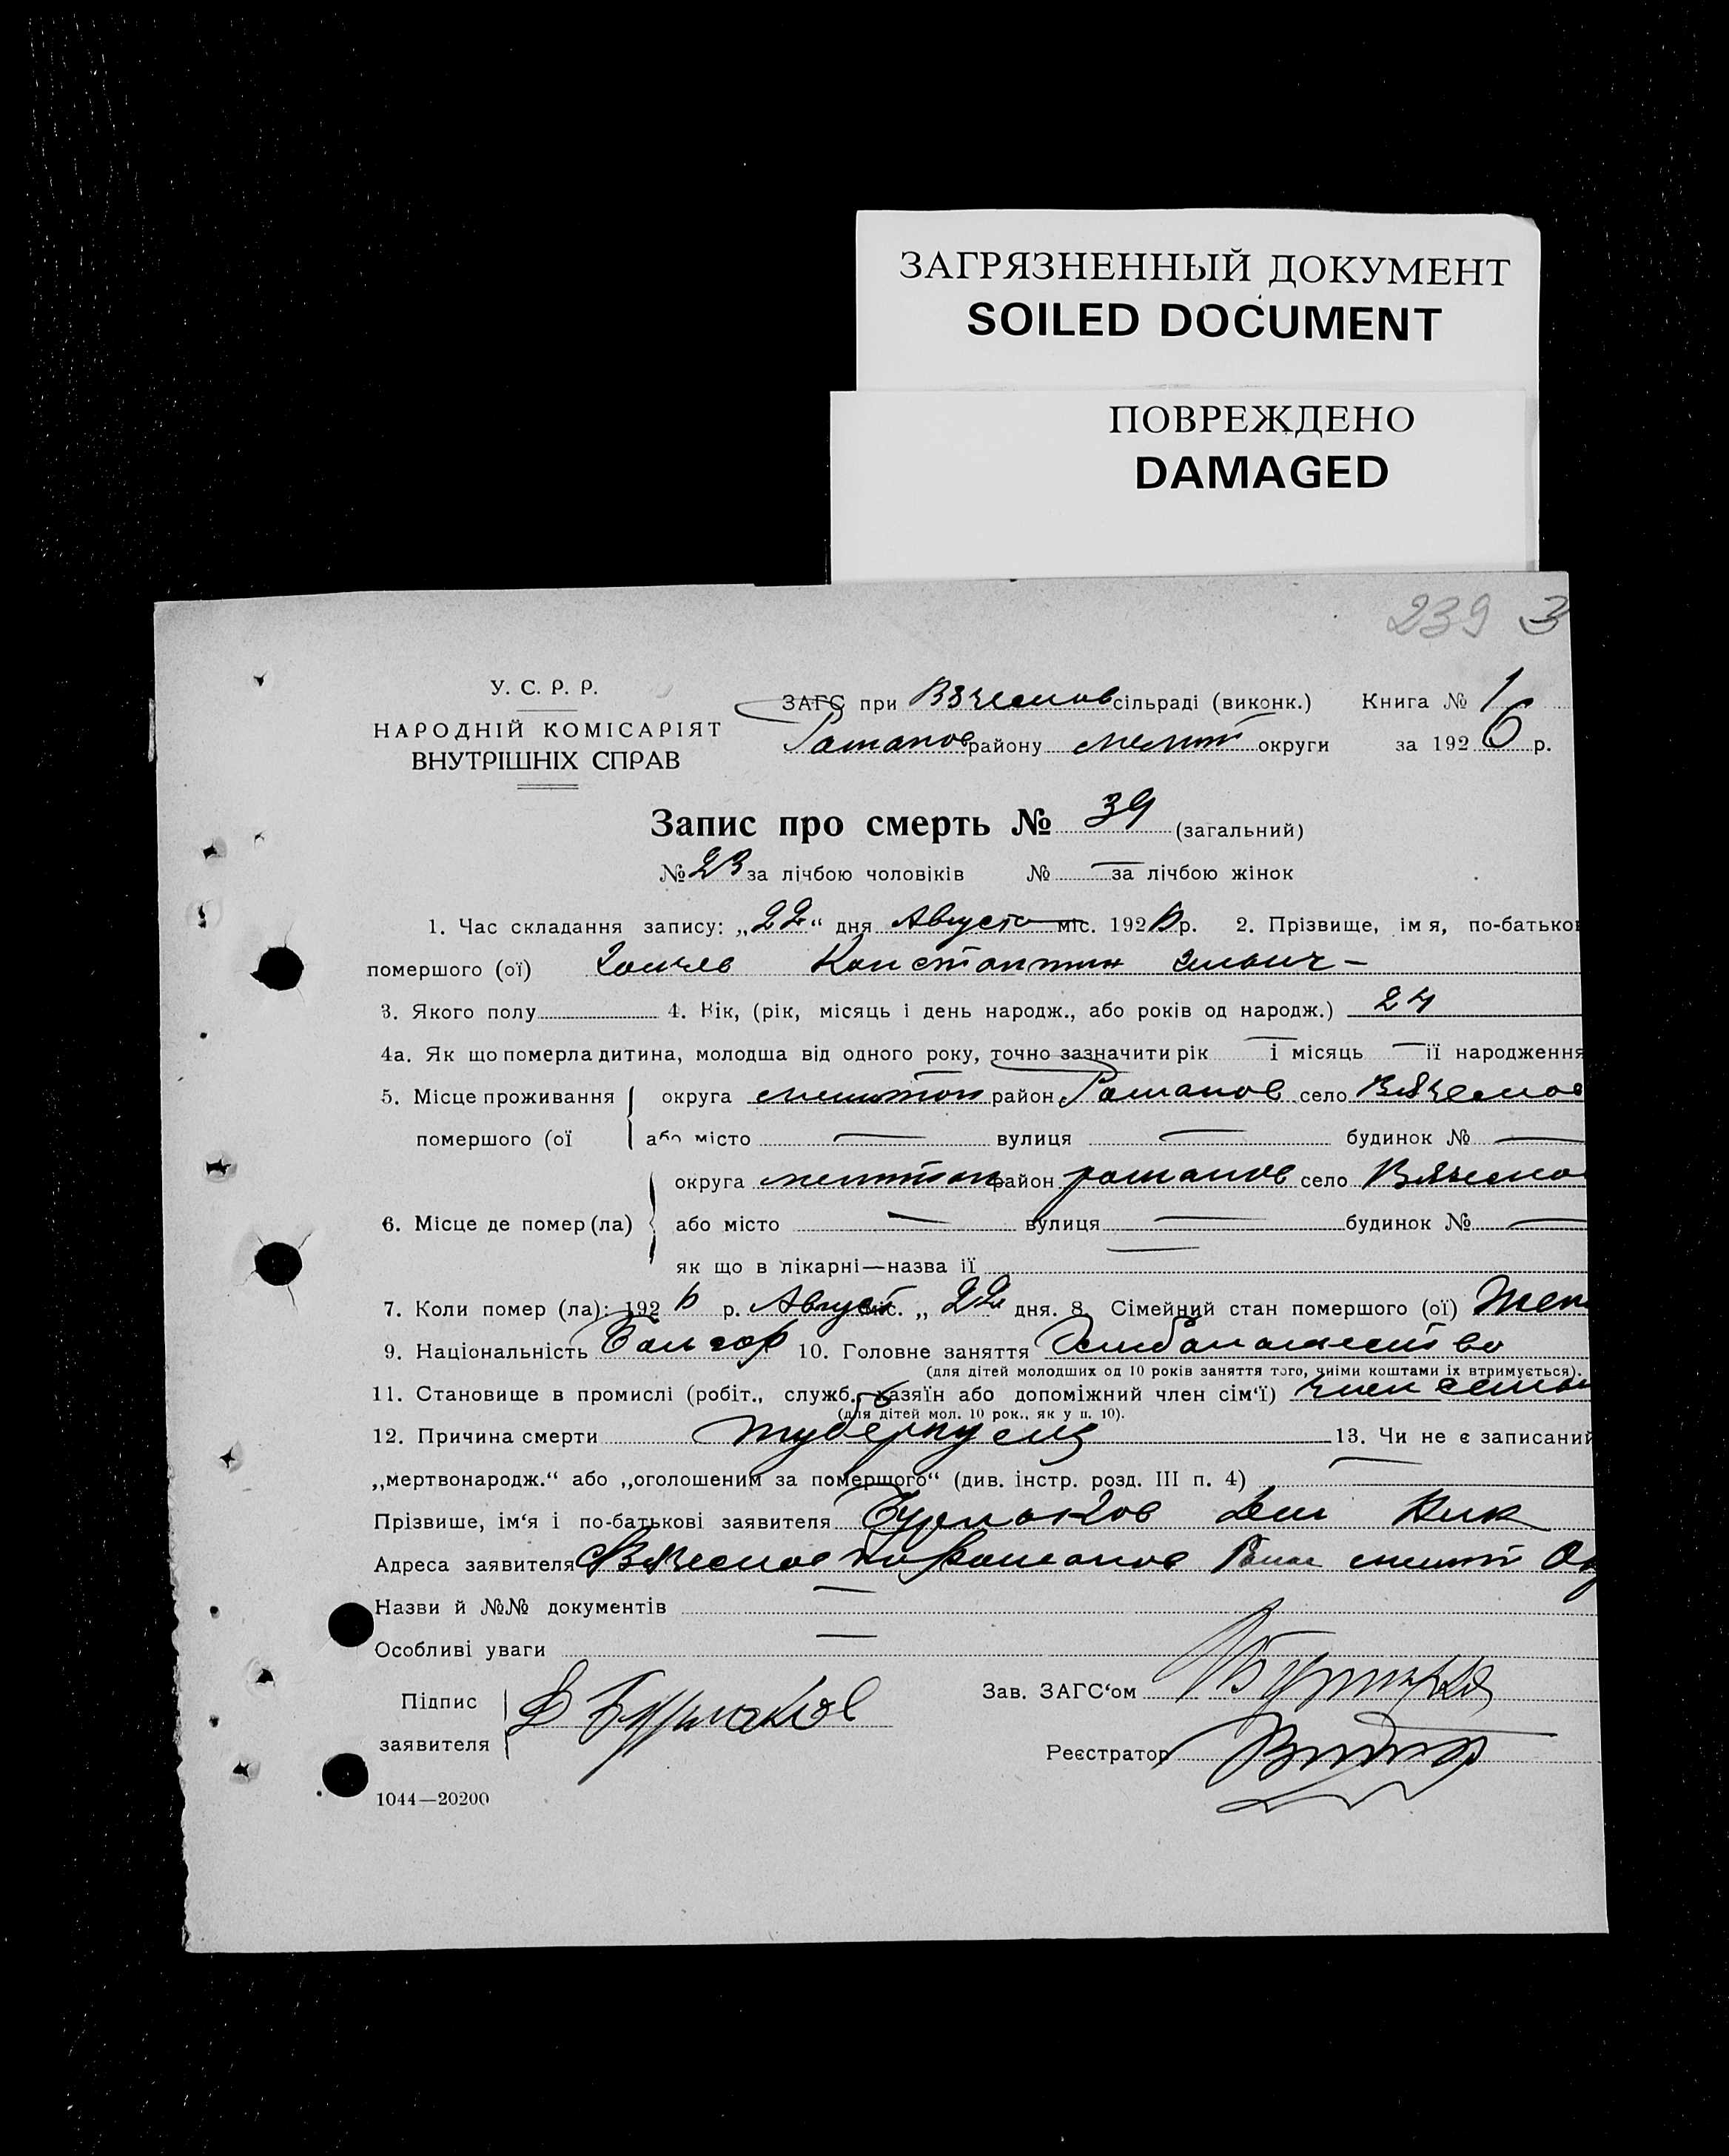 ЗАГРЯЗНЕННЫЙ ДОКУМЕНТ
SOILED DOCUMENT
ПОВРЕЖДЕНО
DAMAGED
239 3
У. С. Р. Р.
НАРОДНІЙ КОМІСАРІЯТ
ВНУТРІШНІХ СПРАВ
ЗАГС при сільраді (виконк.) Книга № 1
Романов району мелит округи за 1926 р.
Запис про смерть № 39 (загальний)
№ 23 за лічбою чоловіків № — за лічбою жінок
1. Час складання запису: „22“ дня Августа міс. 1926 р. 2. Прізвище, імя, по-батьков
помершого (ої) Константин Ильич –
3. Якого полу 4. Вік, (рік, місяць і день народж., або років од народж.) 24
4а. Як що померла дитина, молодша від одного року, точно зазначити рік — і місяць — її народження
5. Місце проживання округа район Романов село
помершого (ої або місто — вулиця — будинок № —
округа район романов село
6. Місце де помер (ла) або місто — вулиця — будинок № —
як що в лікарні—назва її —
7. Коли помер (ла): 1926 р. Август міс. „22 дня. 8. Сімейний стан помершого (ої) Жен
9. Національність Болгар 10. Головне заняття
(для дітей молодших од 10 років заняття того, чиїми коштами їх втримується).
11. Становище в промислі (робіт., служб., хазяїн або допоміжний член сім‘ї) член семьи
(для дітей мол. 10 рок., як у п. 10).
12. Причина смерти туберкулез 13. Чи не є записаний
„мертвонародж.“ або „оголошеним за померщого“ (див. інстр. розд. III п. 4) —
Прізвише, ім‘я і по-батькові заявителя Бурлаков
Адреса заявителя Романов
Назви й №№ документів —
Особливі уваги —
Підпис
заявителя Д Бурлаков
Зав. ЗАГС‘ом
Реєстратор
1044—20200